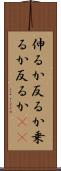 伸るか反るか乗
るか反るか